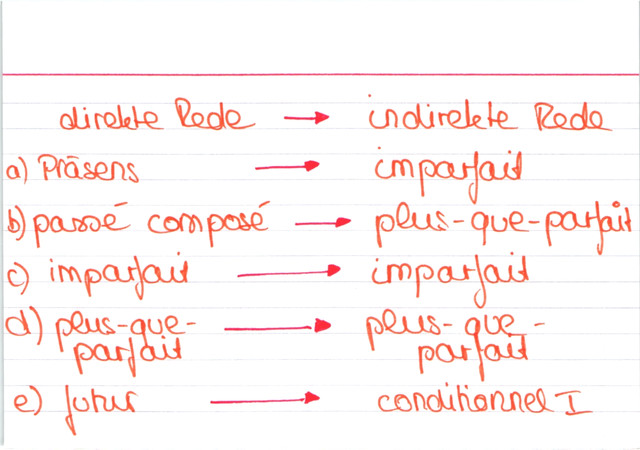 direkte Rede → indirekte Rede
a) Präsens → imparfait
b) passé composé → plus-que-parfait
c) imparfait → imparfait
d) plus-que-parfait → plus-que-parfait
e) futur → conditionnel I